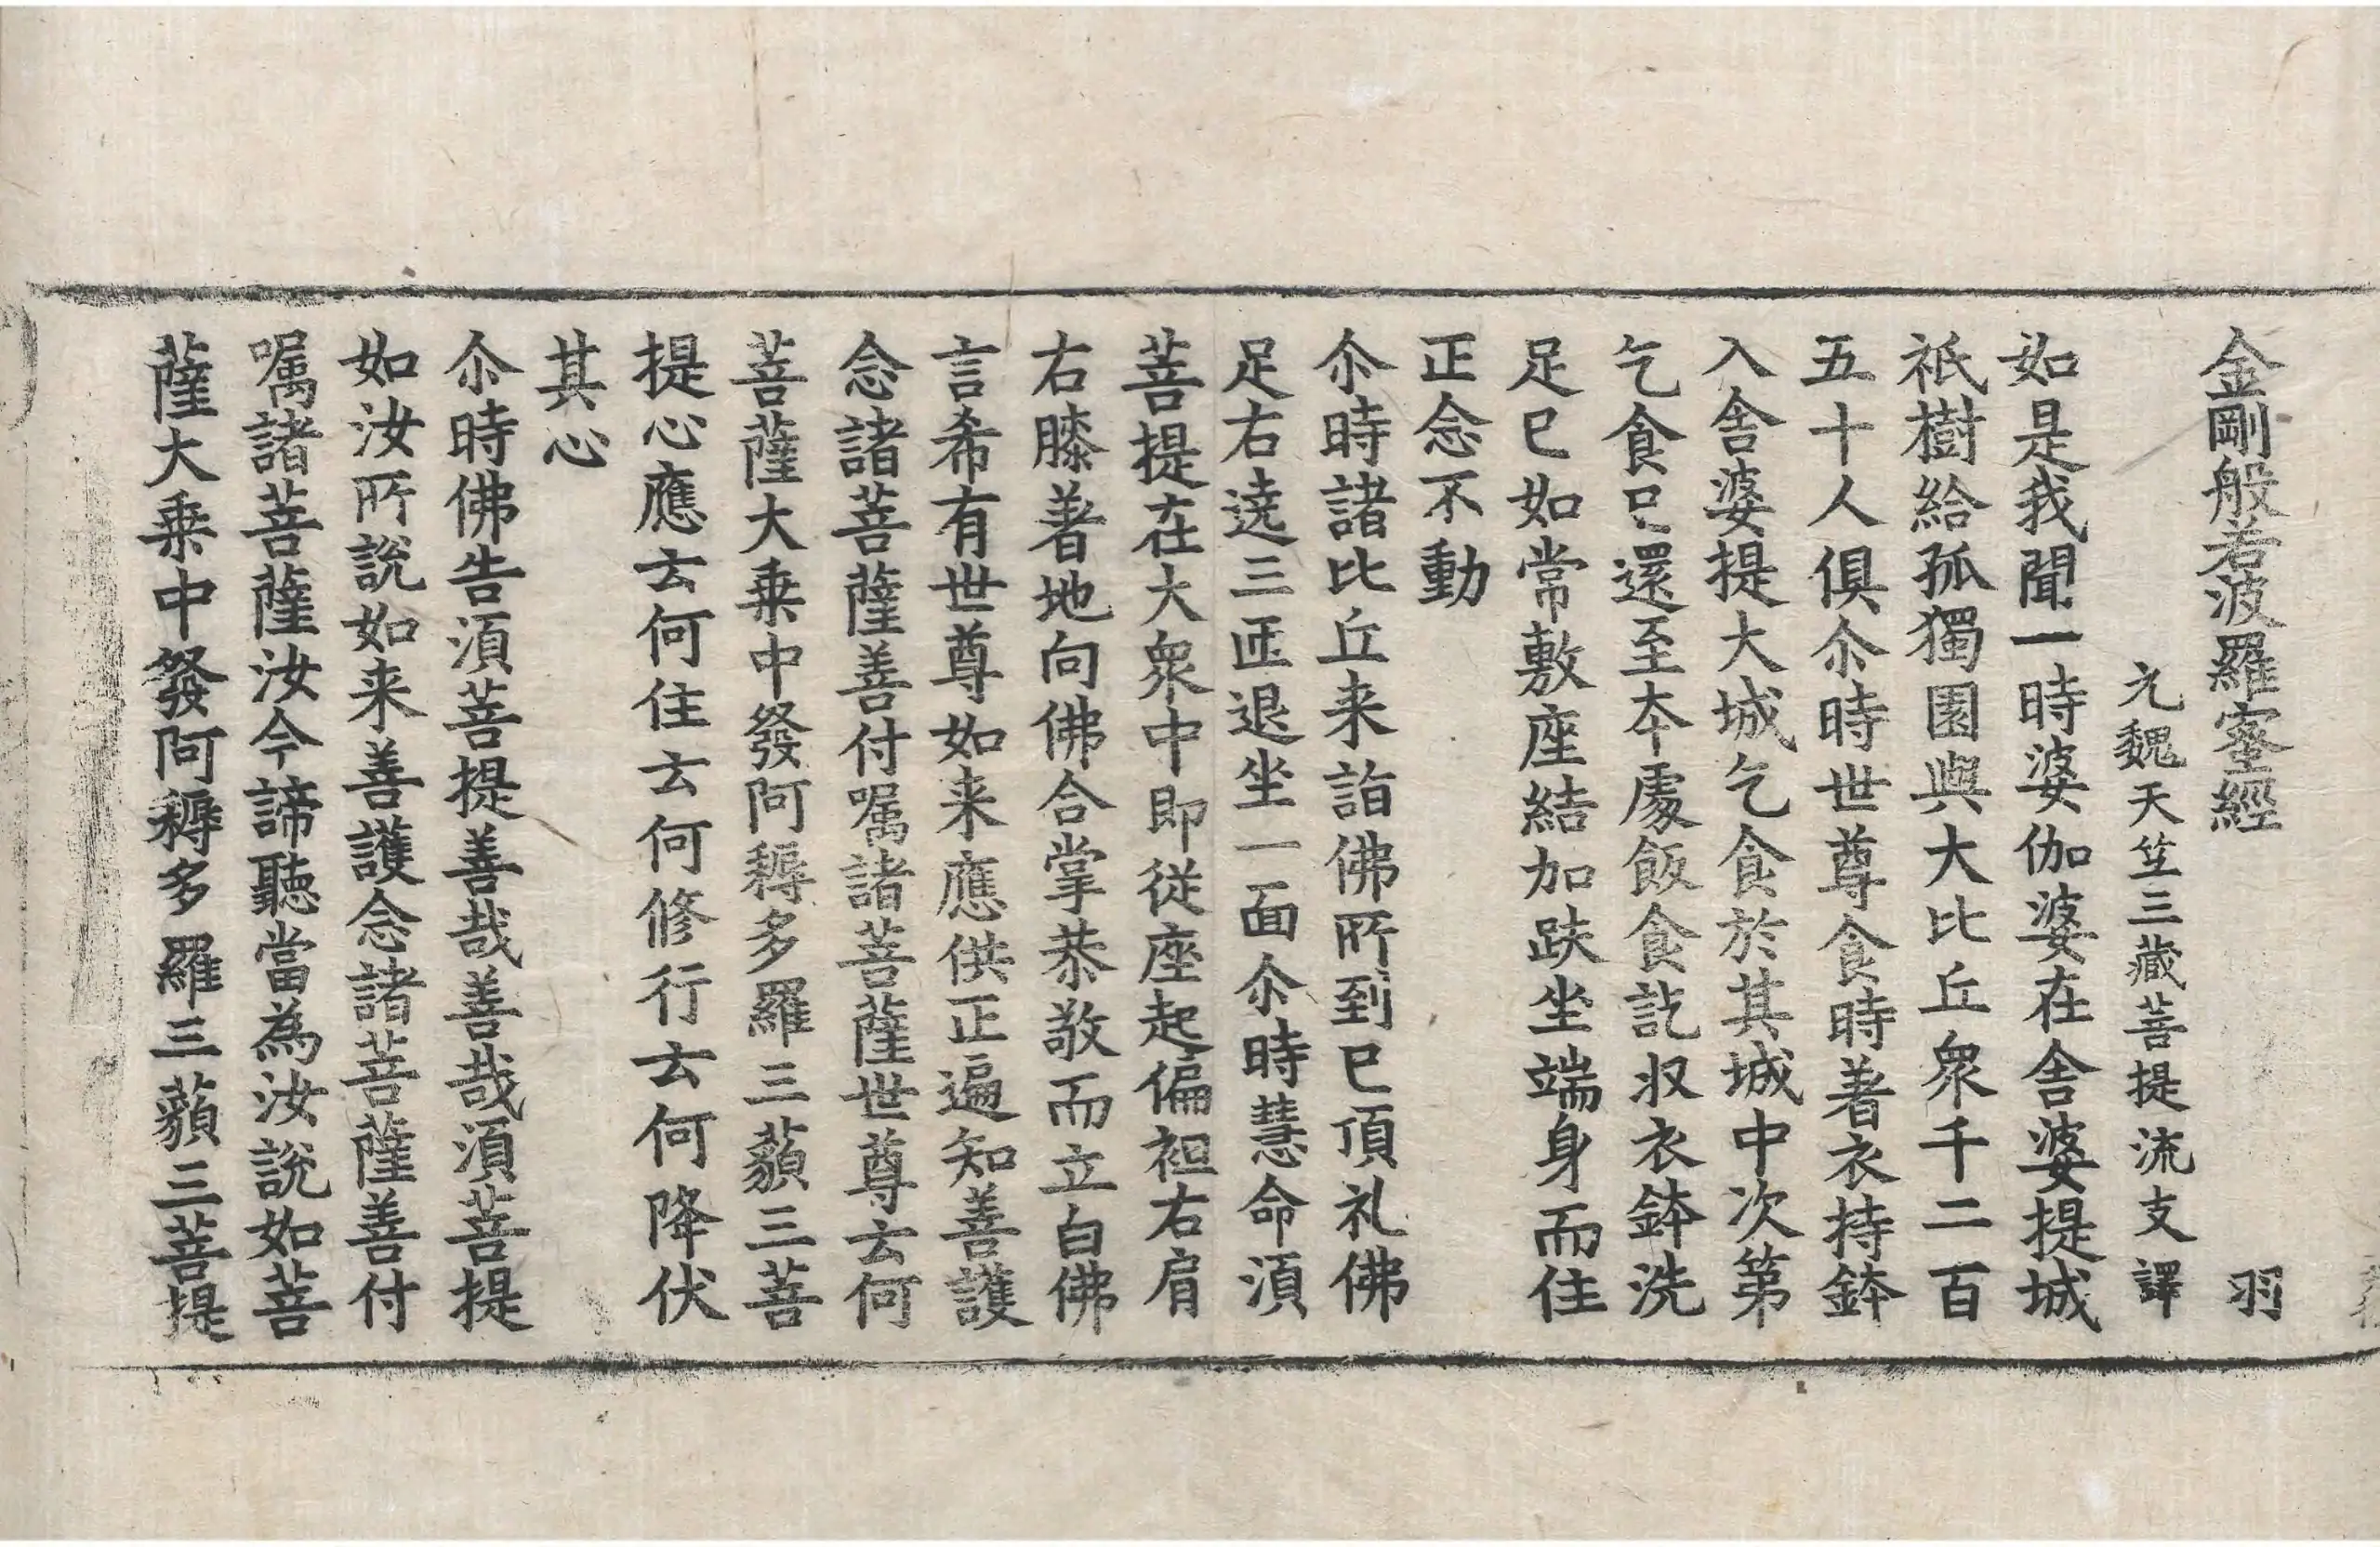 金剛般若波羅蜜經 羽
元魏天笁三藏菩提流支譯
如是我聞一時婆伽婆在舎婆提城
祇樹給孤獨園與大比丘衆千二百
五十人俱尒時世尊食時著衣持鉢
入舎婆提大城乞食於其城中次第
乞食已還至夲處飯食訖収衣鉢洗
足已如常敷座結加趺坐端身而住
正念不動
尒時諸比丘来詣佛所到已頂礼佛
足右遶三匝退坐一面尒時慧命湏
菩提在大衆中即從座起偏袒右肩
右膝著地向佛合掌恭敬而立白佛
言希有世尊如来應供正遍知善護
念諸菩薩善付嘱諸菩薩世尊云何
菩薩大乗中發阿耨多羅三藐三菩
提心應云何住云何修行云何降伏
其心
尒時佛告湏菩提善哉善哉湏菩提
如汝所説如来善護念諸菩薩善付
嘱諸菩薩汝今諦聽當為汝説如菩
薩大乗中發阿耨多羅三藐三菩提